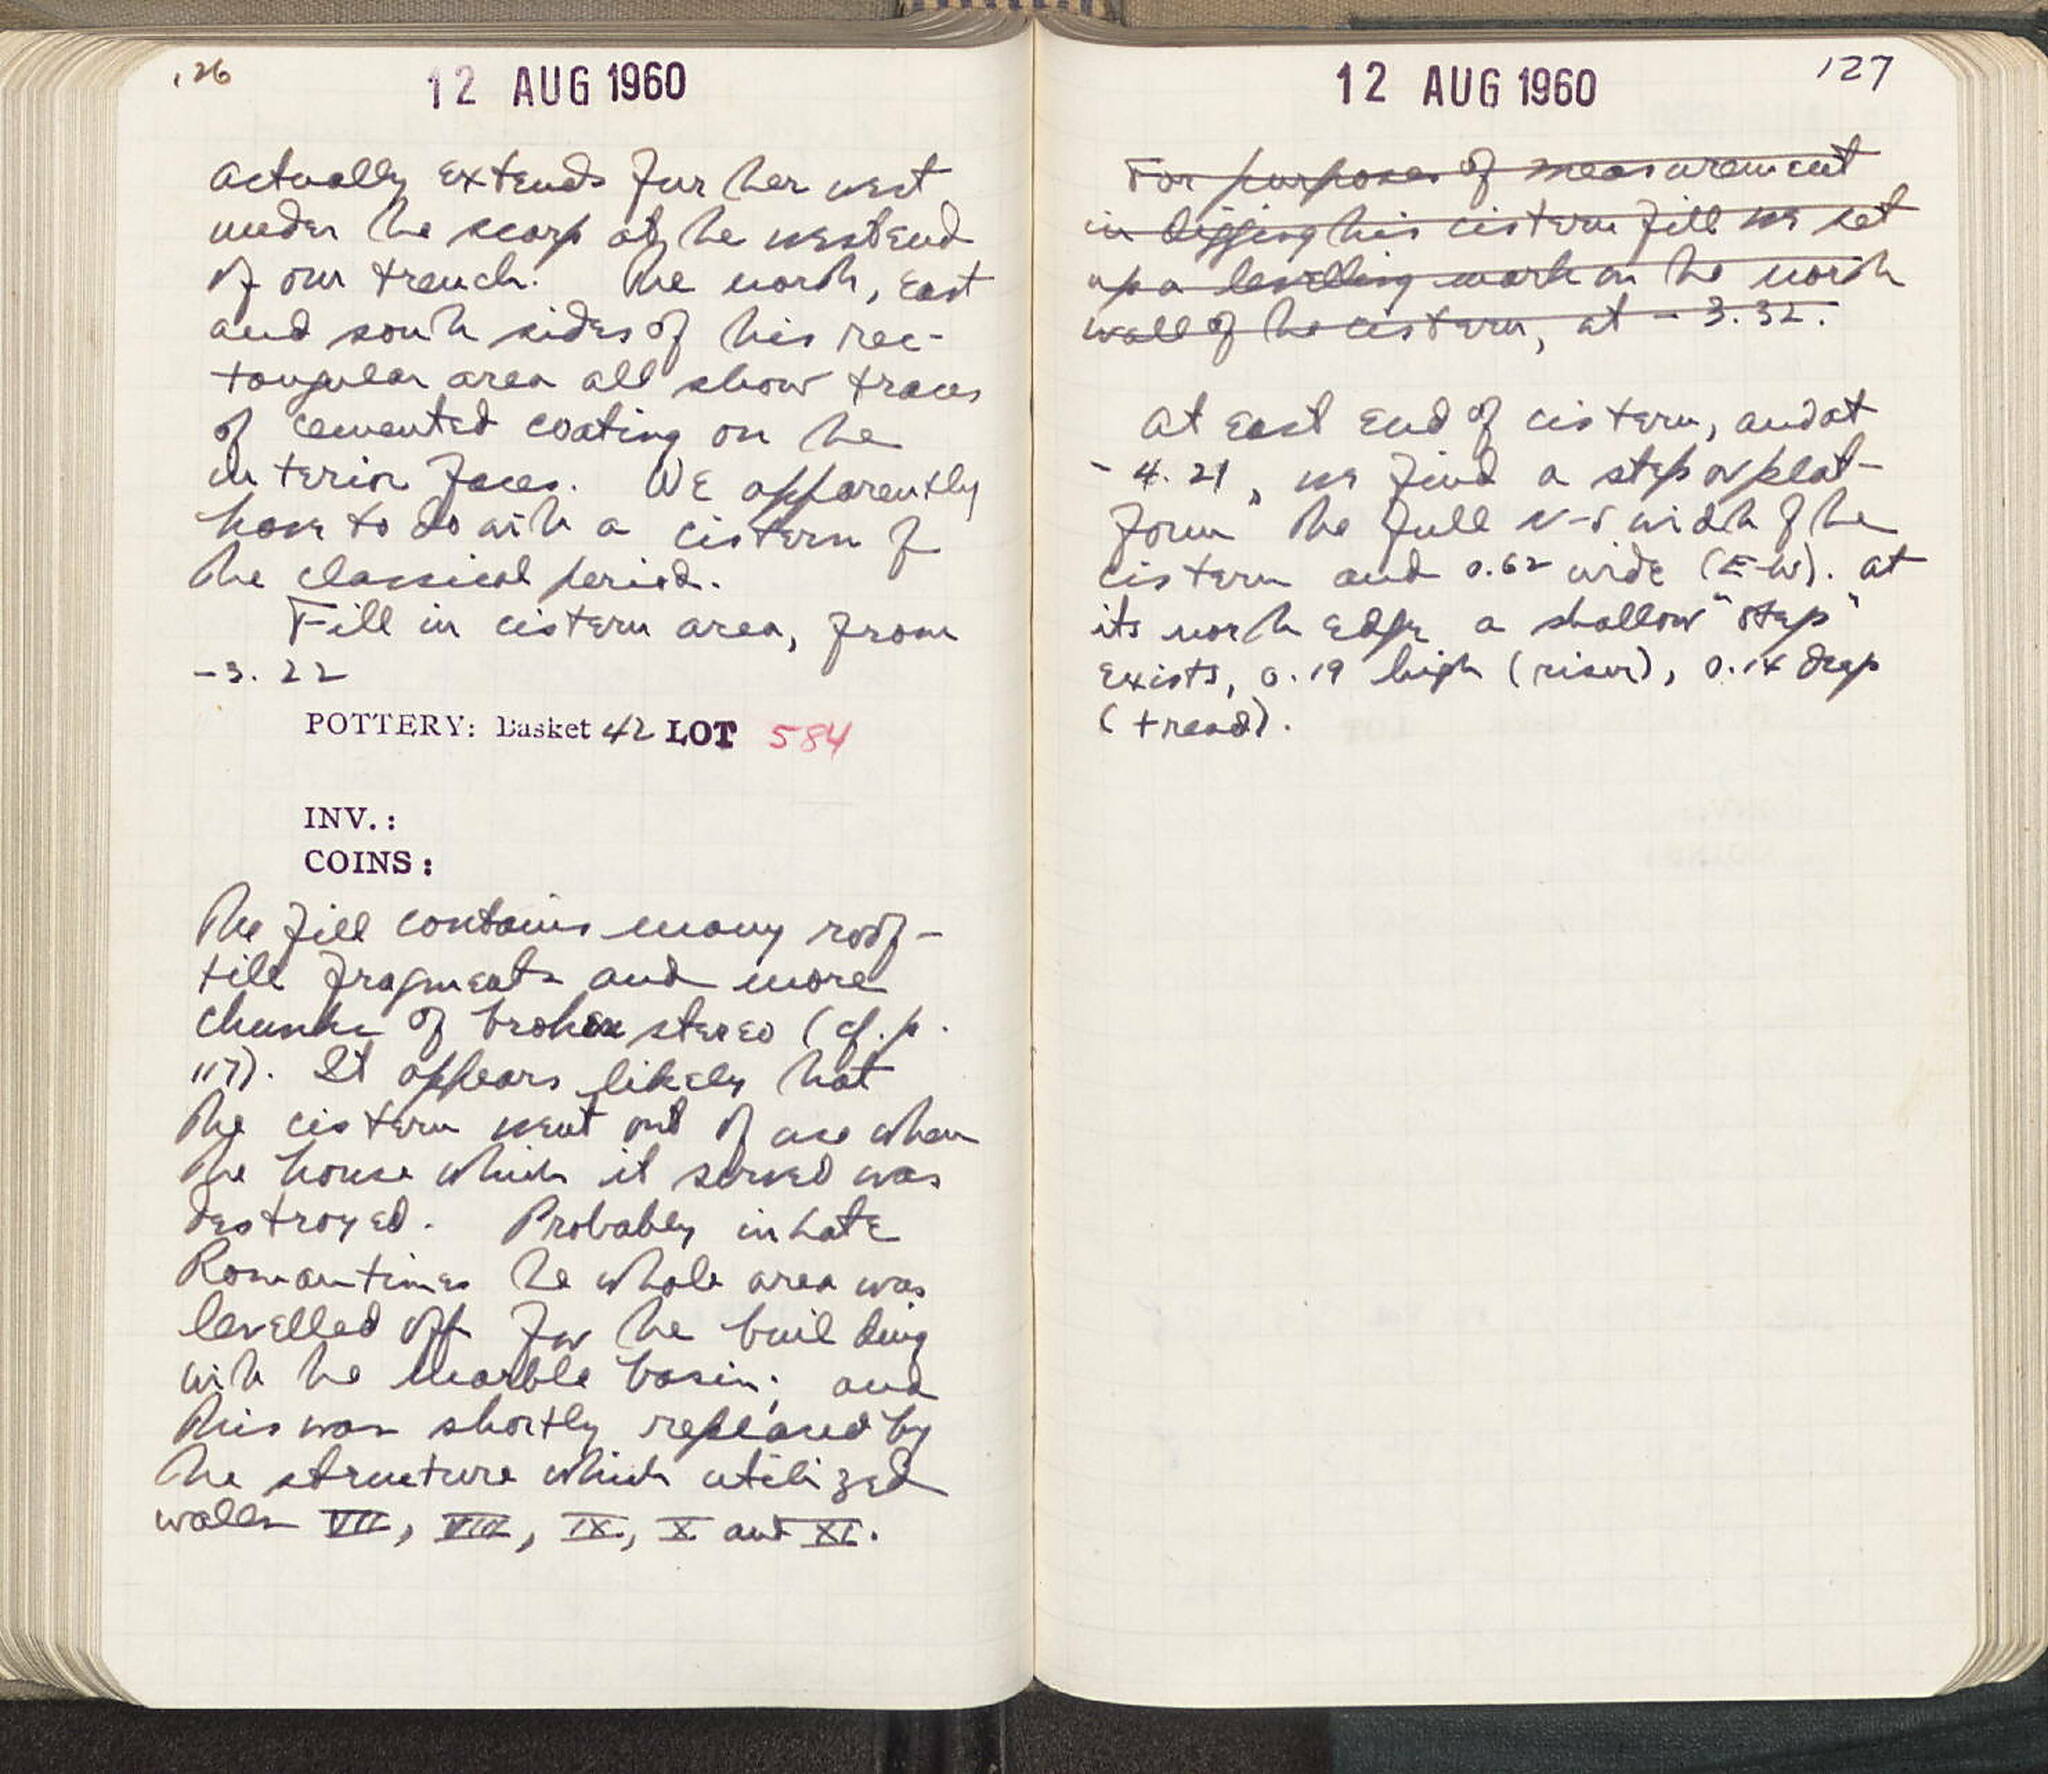 126
12 AUG 1960
actually extends further west
under the scarp at the west end
of our trench. The north, east
and south sides of this rec-
tangular area all show traces
of cemented coating on the
interior faces. We apparently
have to do with a cistern of
the classical period.
Fill in cistern area, from
-3.22
POTTERY: Basket 42 LOT 584
INV.:
COINS:
The fill contains many roof-
tile fragments and more
chunks of broken stereo (cf. p.
117). It appears likely that
the cistern went out of use when
the house which it served was
destroyed. Probably in Late
Roman times the whole area was
levelled off for the building
with the marble basin; and
this was shortly replaced by
the structure which utilized
walls VII, VIII, IX, X and XI.
12 AUG 1960
127
For purposes of measurement
in digging this cistern fill we set
up a levelling mark on the north
wall of the cistern, at -3.32.
At east end of cistern, and at
-4.21, we find a step or plat-
form" the full N-S width of the
cistern and 0.62 wide (E-W). At
its north edge a shallow "step"
exists, 0.19 high (riser), 0.14 deep
(tread).